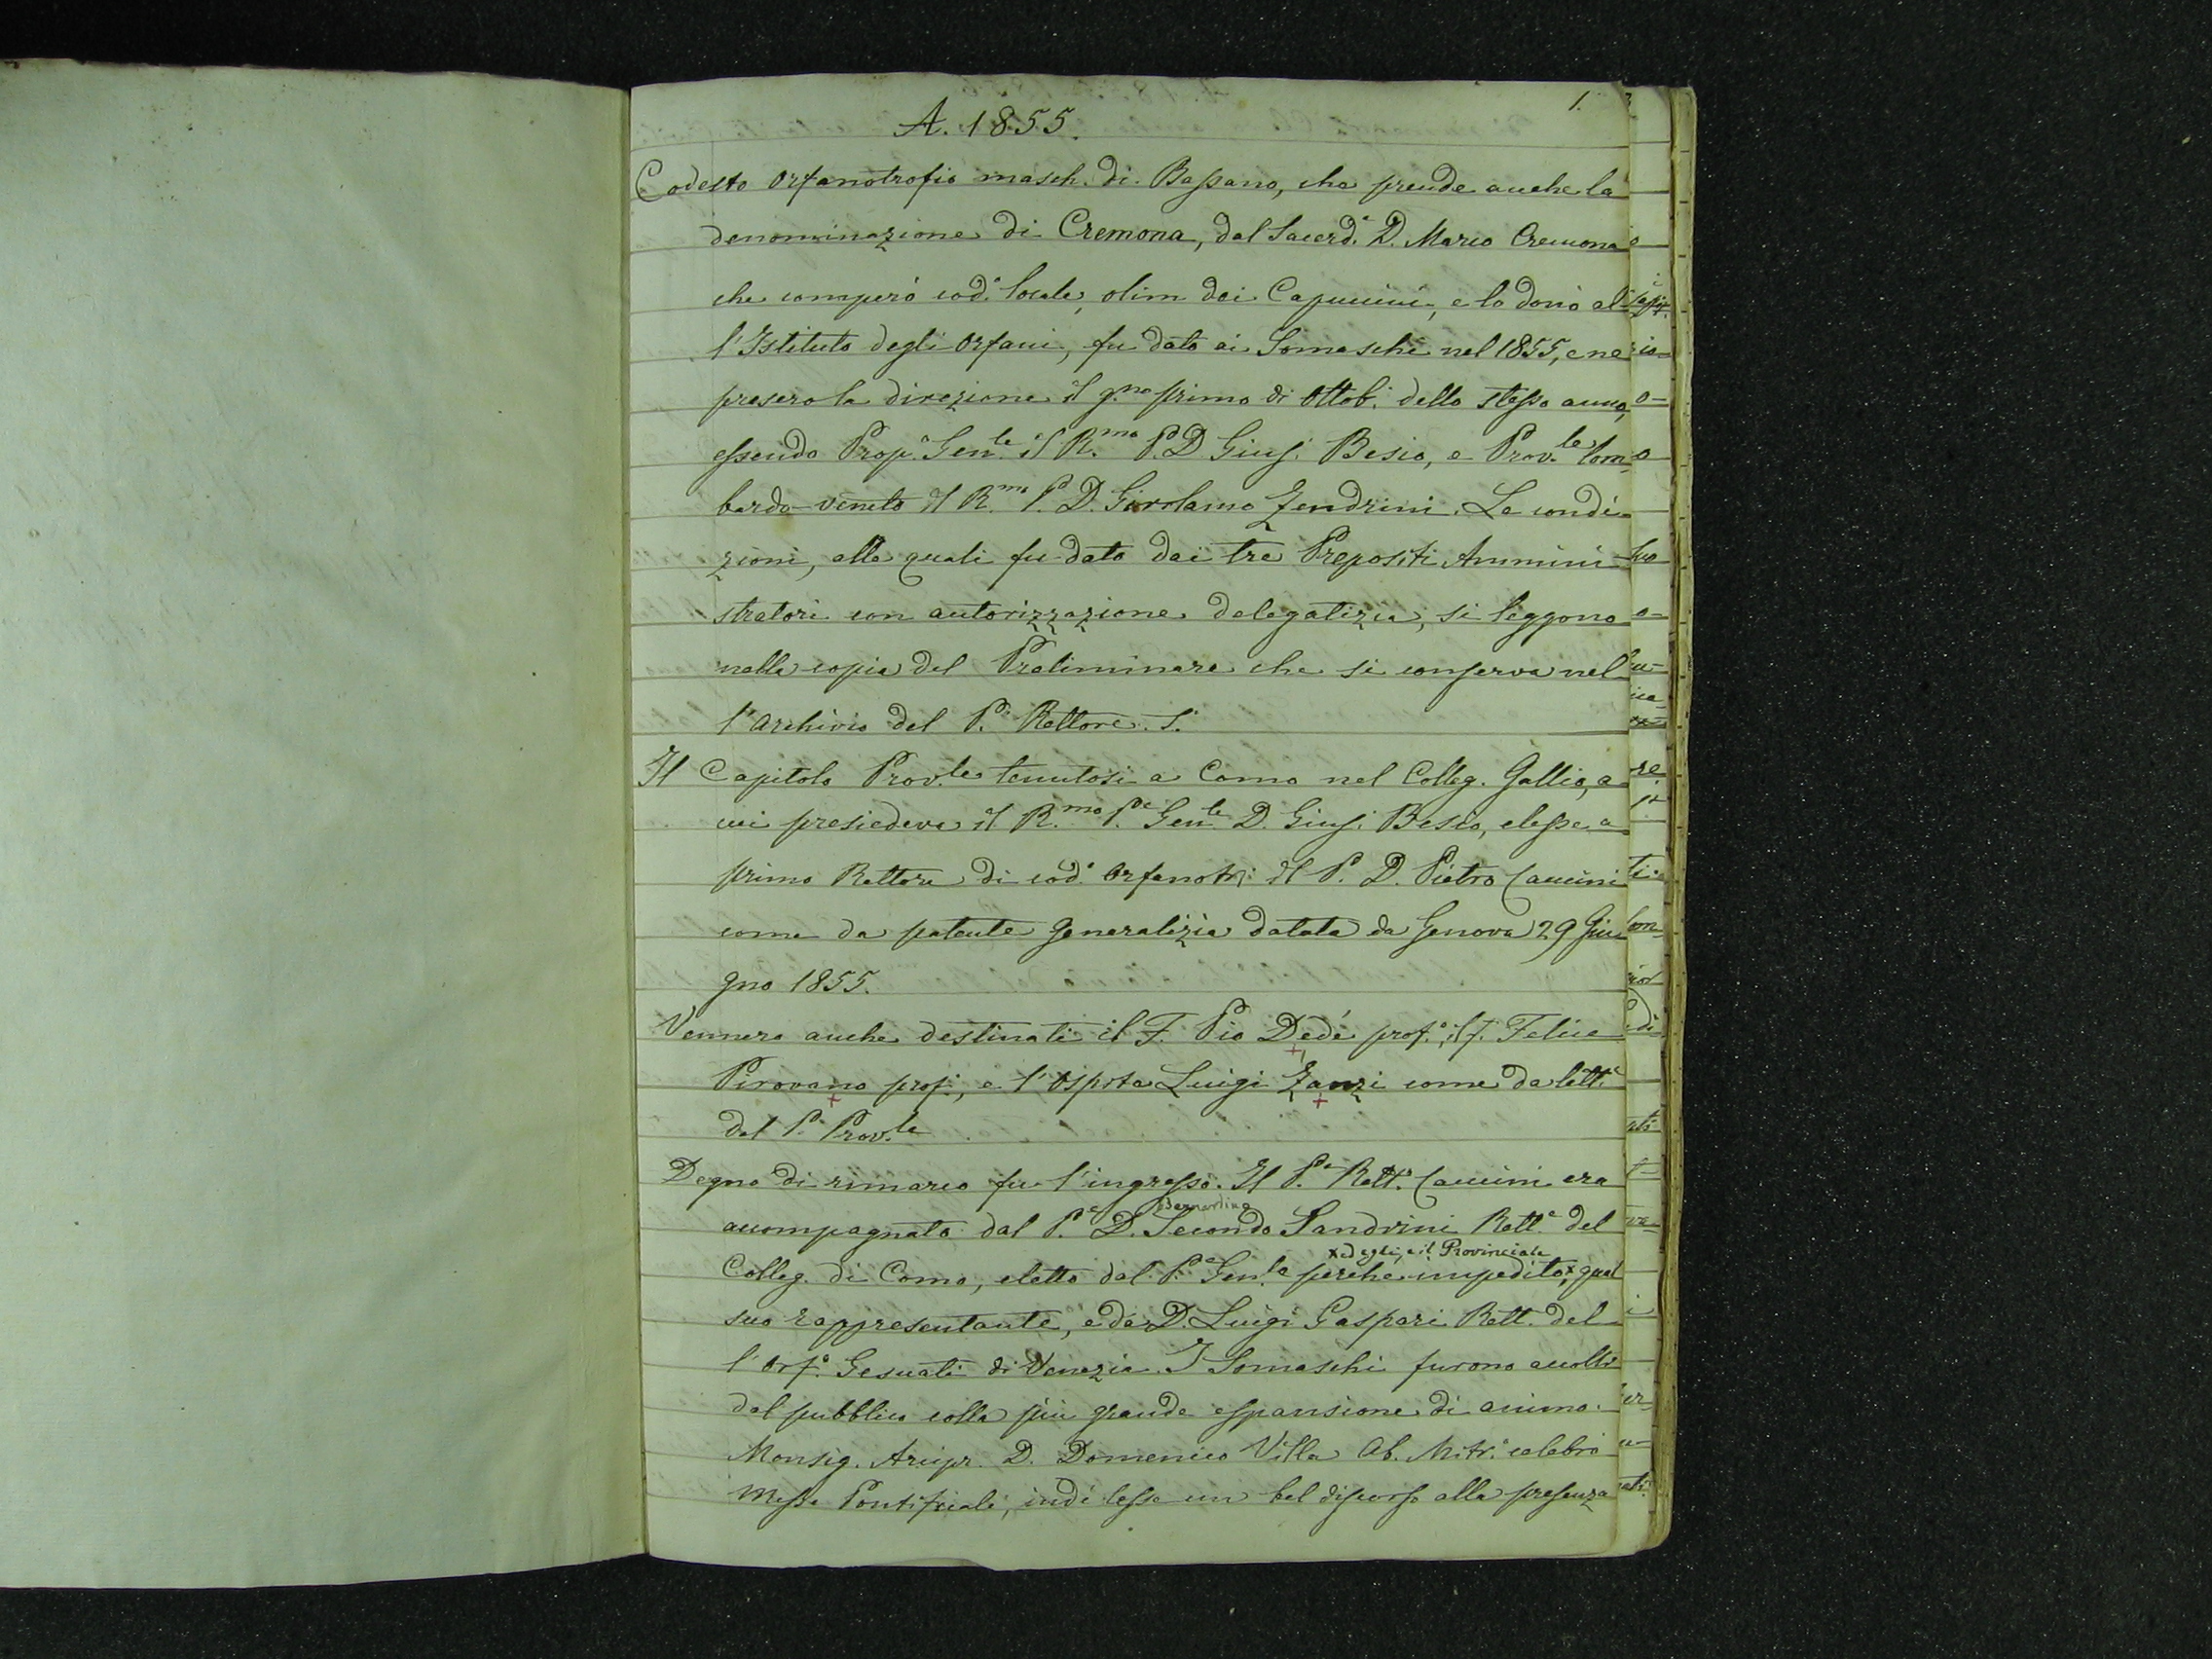 1.
A. 1855.
Codesto Orfanotrofio masch. di Bassano, che prende anche la
denominazione di Cremona, dal Sacerd.e D. Marco Cremona
che comperò cod.o locale, olim dei Capuccini, e lo donò al-
l'Istituto degli Orfani, fu dato ai Somaschi nel 1855, e ne
presero la direzione il g.no primo di Ottob. dello stesso anno,
essendo Prep.o Gen.le il R.mo P. D. Gius. Besio, e Prov.le lom-
bardo-veneto il R.mo P. D. Girolamo Zendrini. Le condi-
zioni, alle quali fu dato dai tre Prepositi Ammini-
stratori con autorizzazione delegatizia, si leggono
nella copia del Preliminare che si conserva nel-
l'Archivio del P. Rettore.
Il Capitolo Prov.le tenutosi a Como nel Colleg. Gallio, a
cui presiedeva il R.mo P.e Gen.le D. Gius. Besio, elesse a
primo Rettore di cod.o Orfanotr. il P. D. Pietro Caccini
come da patente generalizia datata da Genova 29 Giu-
gno 1855.
Vennero anche destinati il F. Pio Dedè prof.o, il f. Felice
Pirovano prof., e l'Ospite Luigi Zanzi come da lett.e
del P. Prov.le
Degno di rimarco fu l'ingresso. Il P.e Rett.e Caccini era
accompagnato dal P.e D. Secondo Sandrini Rett.e del
Bernardino
Colleg. di Como, eletto dal P.e Gen.le perchè impedito x qual
x ed egli, e il Provinciale
suo rappresentante, e da D. Luigi Gaspari Rett. del-
l'Orf.o Gesuati di Venezia. I Somaschi furono accolti
dal pubblico colla più grande espansione di animo.
Monsig. Arcipr. D. Domenico Villa Ab. Mitr.o celebrò
Messa Pontificale, indi lesse un bel discorso alla presenza